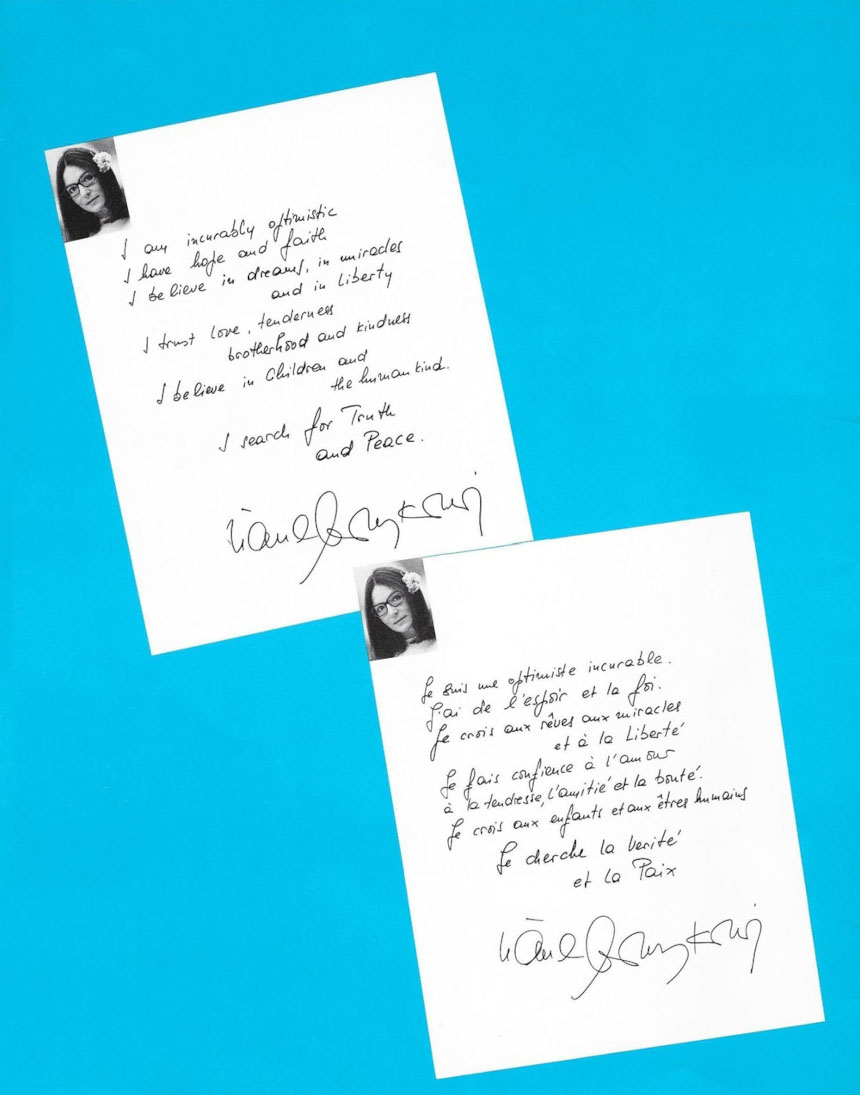 I am incurably optimistic
I have hope and faith
I believe in dreams, in miracles
and in Liberty
I trust love, tenderness
brotherhood and kindness
I believe in Children and
the human kind.
I search for Truth
and Peace.
Nana Mouskouri
Je suis une optimiste incurable.
J'ai de l'espoir et la foi.
Je crois aux rêves aux miracles
et à la Liberté
Je fais confience à l'amour
à la tendresse, l'amitié et la bonté.
Je crois aux enfants et aux êtres humains
Je cherche la Verité
et la Paix
Nana Mouskouri